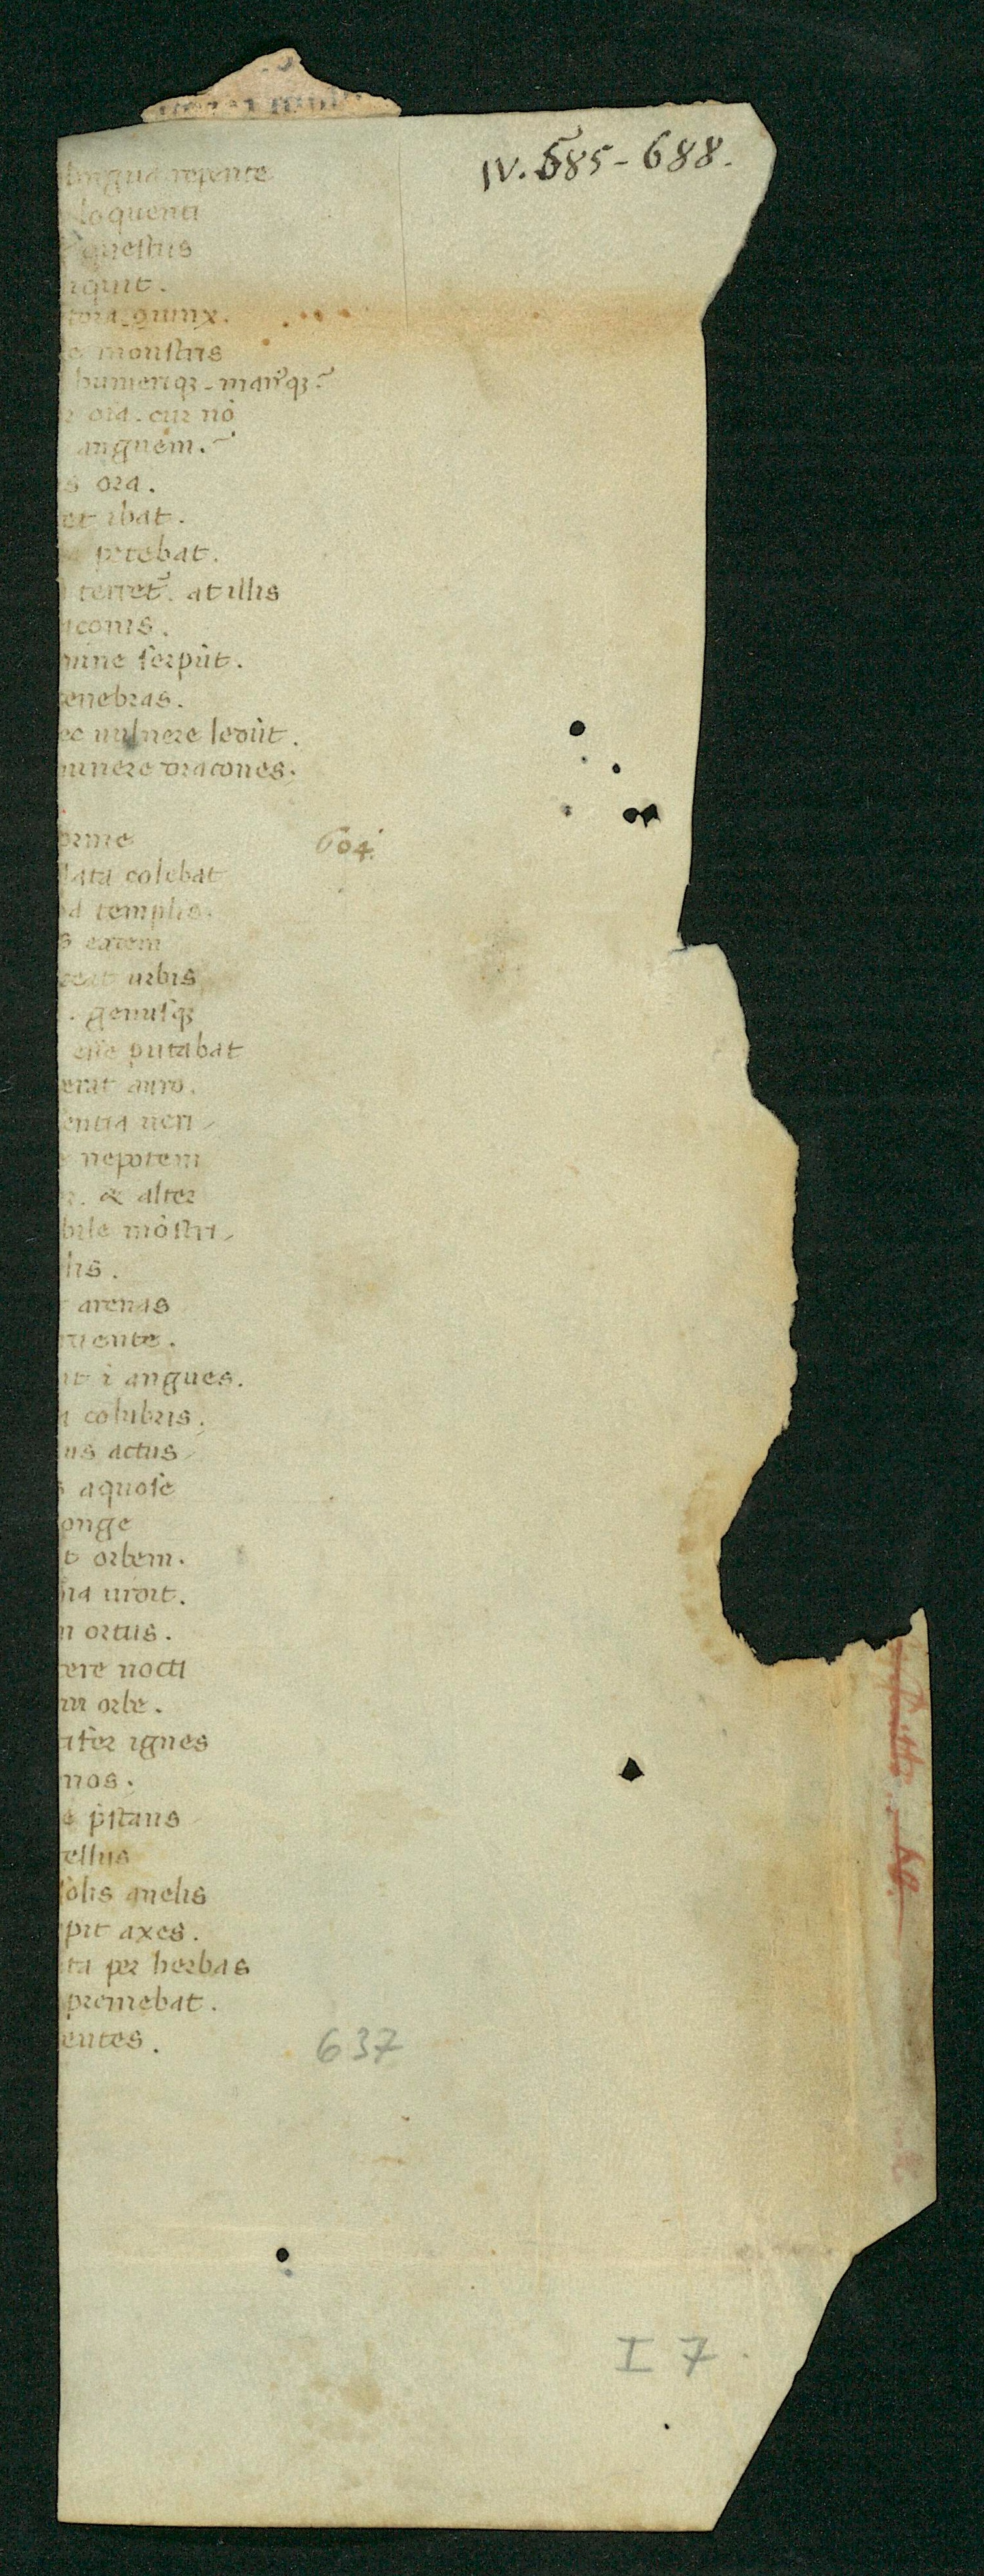 IV. 585-688.
lingua repente
loquenti
questus
iquit.
tora. ꝯiunx.
monstris
humeriqꝫ - manꝰqꝫ
ora. cur nō
anguem.
s ora.
et ibat.
petebat.
terret̃. at illis
aconis.
mine serpūt.
enebras.
ec uulnere ledūt.
uinere dracones.
orme
604
lata colebat
templis.
s eadem
urbis
. genusqꝫ
esse putabat
erat auro.
entia ueri
nepotem
. & alter
bile mōstri
lis.
arenas
tiente.
it ī angues.
colubris.
us actus
aquose
onge
t orbem.
uidit.
n ortus.
ere nocti
in orbe.
ifer ignes
nos.
p̄stans
ellus
solis anelis
pit axes.
ta per herbas
premebat.
entes.
637
I 7.